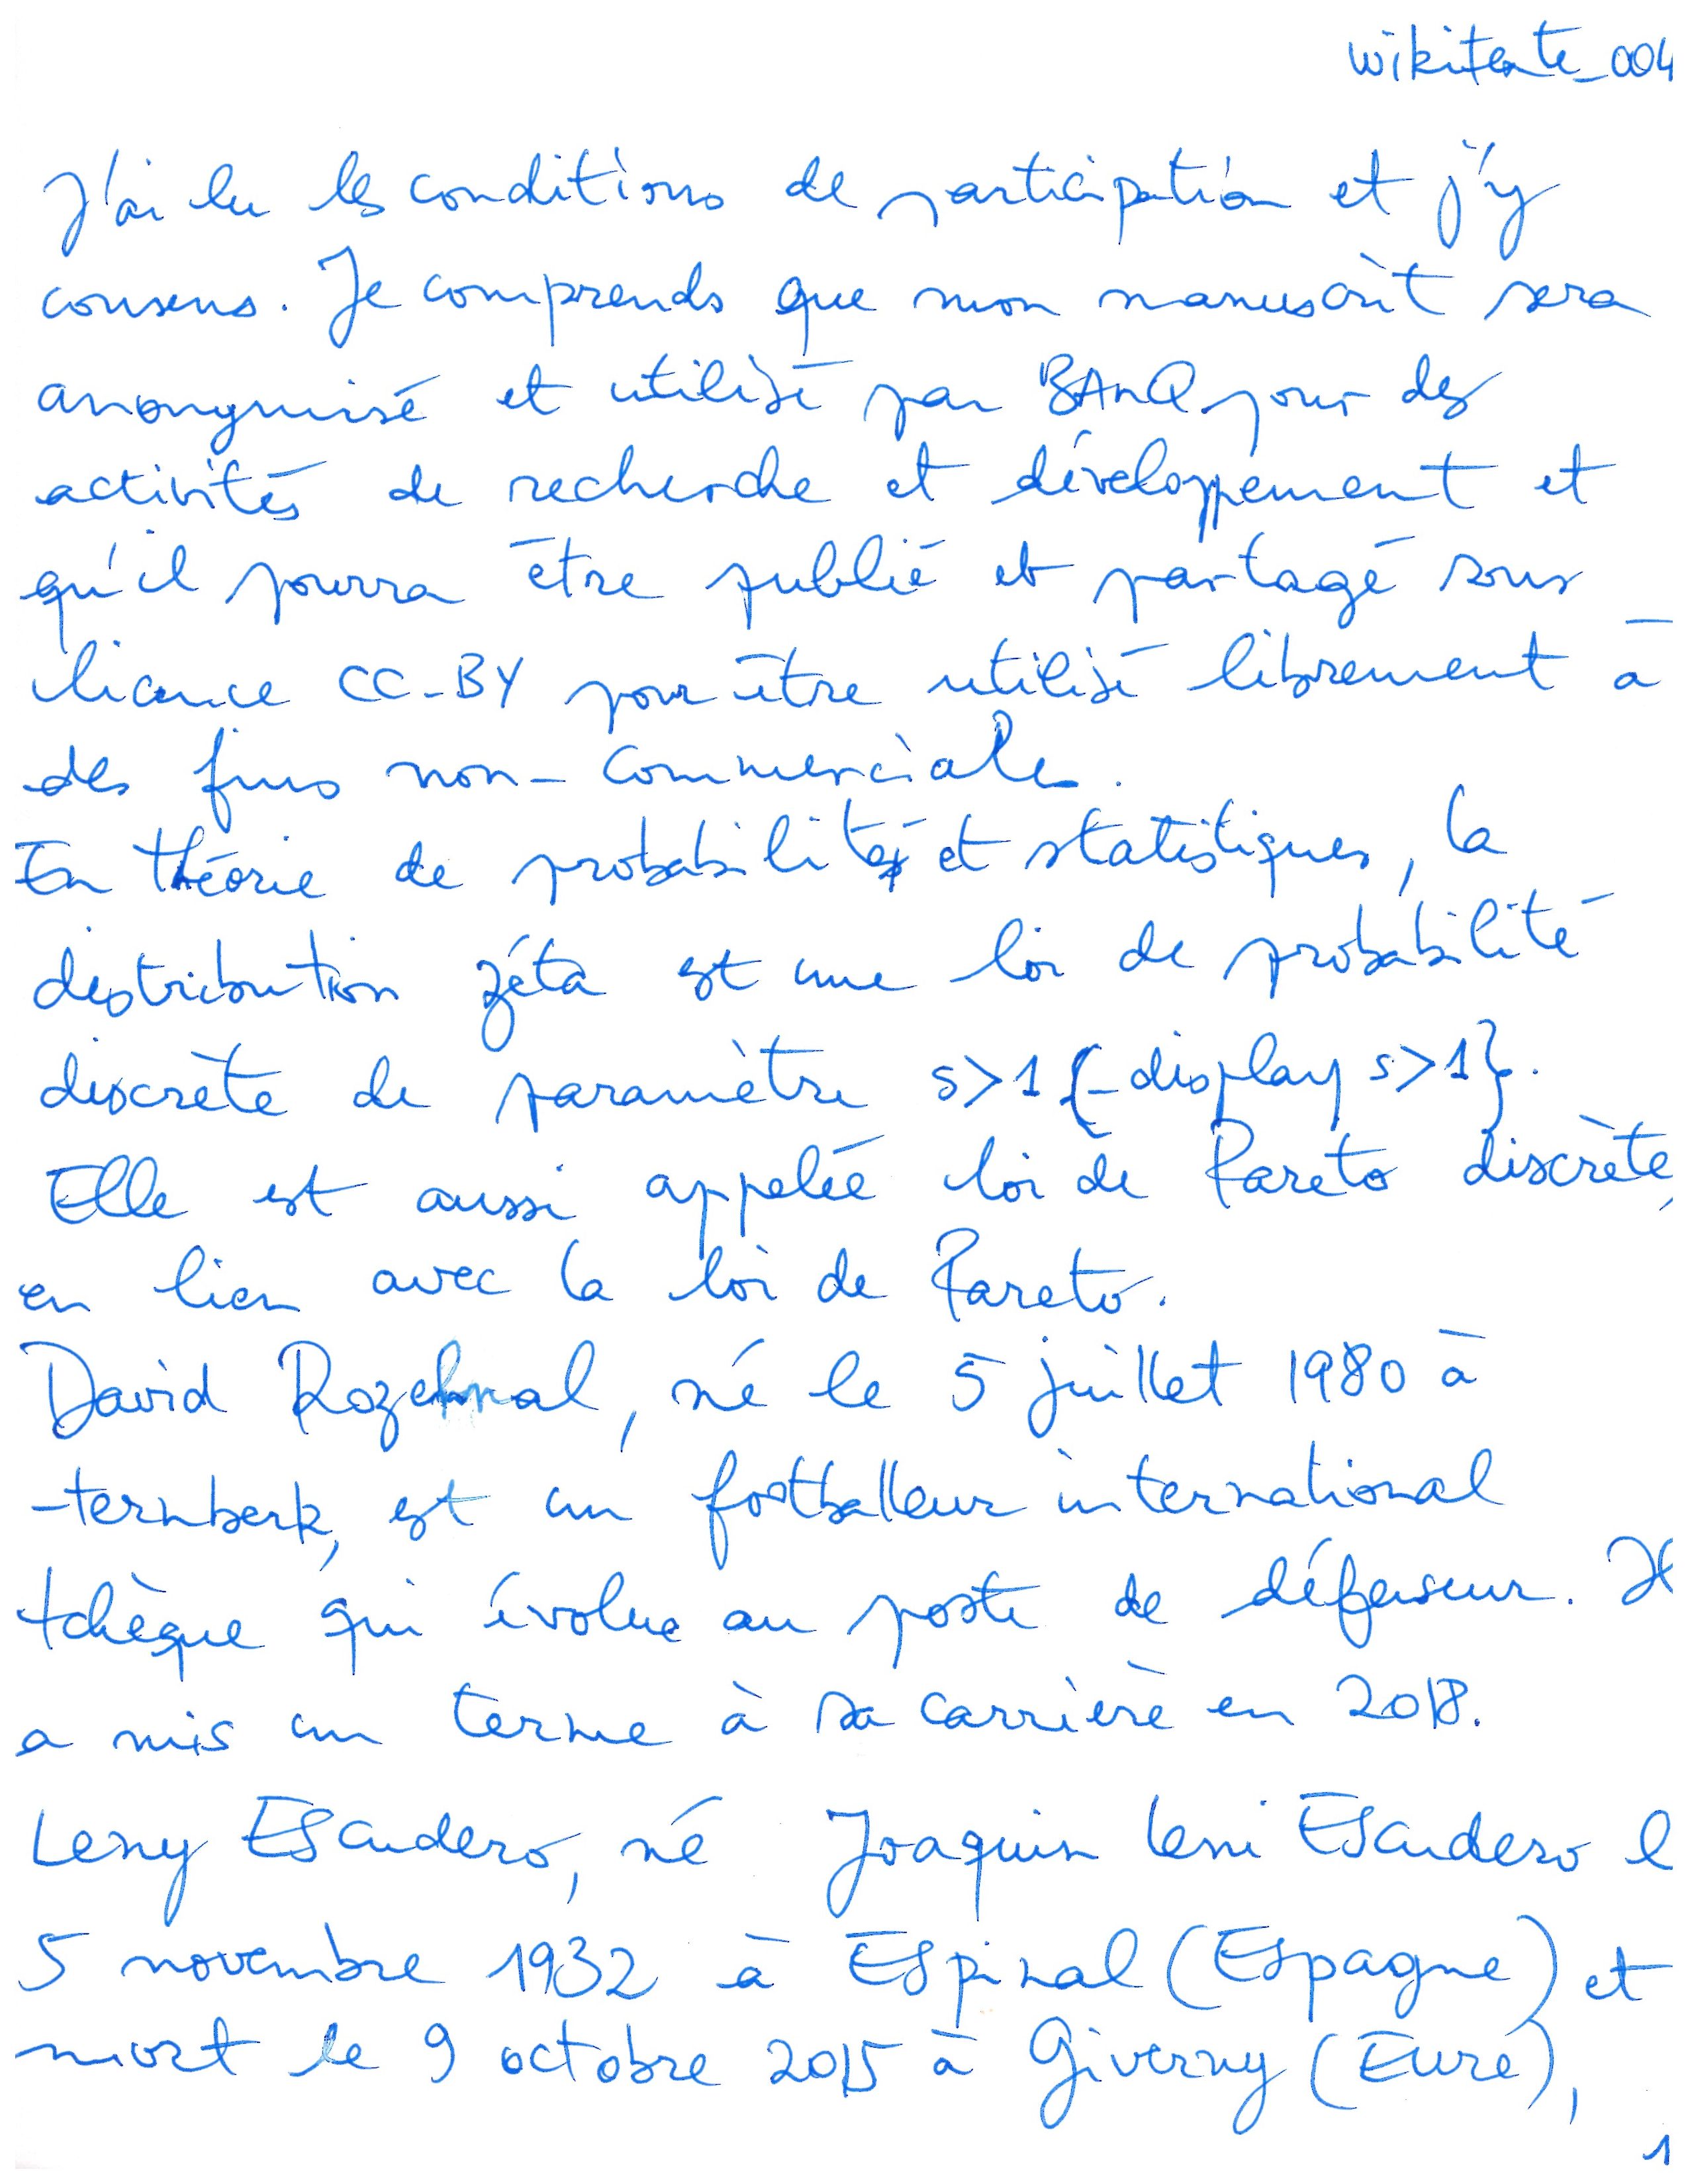 wikitexte_004
J'ai lu les conditions de participation et j'y
consens. Je comprends que mon manuscrit sera
anonymisé et utilisé par BAnQ pour des
activités de recherche et développement et
qu'il pourra être publié et partagé sous
licence CC-BY pour être utilisé librement à
des fins non-commerciales.
En théorie de probabilités et statistiques, la
distribution zéta est une loi de probabilité
discrète de paramètre s>1 {-display s>1}.
Elle est aussi appelée loi de Pareto discrète,
en lien avec la loi de Pareto.
David Rozehnal, né le 5 juillet 1980 à
-ternberk, est un footballeur international
tchèque qui évolue au poste de défenseur. Il
a mis un terme à sa carrière en 2018.
Leny Escudero, né Joaquin Leni Escudero l
5 novembre 1932 à Espinal (Espagne) et
mort le 9 octobre 2015 à Giverny (Eure),
1